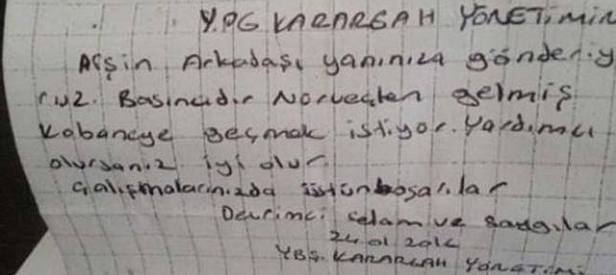 YPG KARARGAH YÖNETiMiN
Arşin Arkadaşı yanınıza gönderiy
ruz. Basıncıdır Norveçten gelmiş
Kobaneye geçmek istiyor. Yardımcı
olursanız iyi olur
Çalışmalarınızda üstün başarılar
Devrimci selam ve saygılar
24 01 2016
YBŞ. KARARGAH YÖNETİMİ